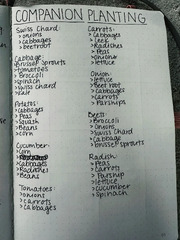 COMPANION PLANTING
Swiss Chard:
> onions
> cabbages
> beetroot
Cabbage:
> Brussel Sprouts
> tomatoes
> Broccoli
> Spinach
> Swiss chard
> Kale
Potatos:
> Cabbages
> Peas
> Squash
> Beans
> corn
Cucumber:
> Corn
> Cabbages
> Radishes
> Beans
Tomatoes:
> onions
> carrots
> cabbages
Carrots:
> Cabbages
> Leek
> Radishes
> Peas
> Onions
> lettuce
Onion:
> lettuce
> Beet root
> Cabbages
> Carrots
> Parsnips
Beets:
> Broccoli
> Onions
> Swiss Chard
> cabbage
> brussel sprouts
Radish:
> Peas
> Carrots
> Parsnip
> lettuce
> cucumber
> Spinach